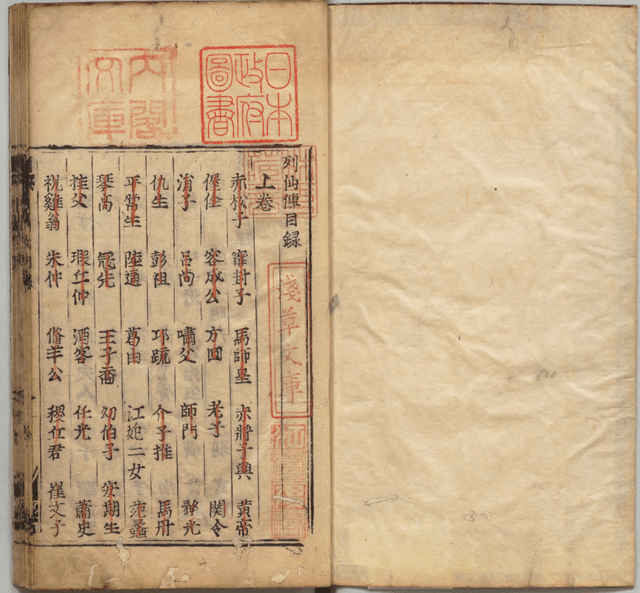 列仙傳目録
上卷
赤松子 甯封子 馬師皇 赤將子輿 黄帝
偓佺 容成公 方回 老子 関令
涓子 吕尚 嘯父 師門 務光
仇生 彭祖 邛疏 介子推 馬丹
平常生 陸通 葛由 江妃二女 范蠡
琴高 冦先 王子喬 幼伯子 安期生
桂父 瑕丘仲 酒客 任光 蕭史
祝雞翁 朱仲 脩羊公 稷丘君 崔文子
日本
政府
圖書
内閣
文庫
淺草文庫